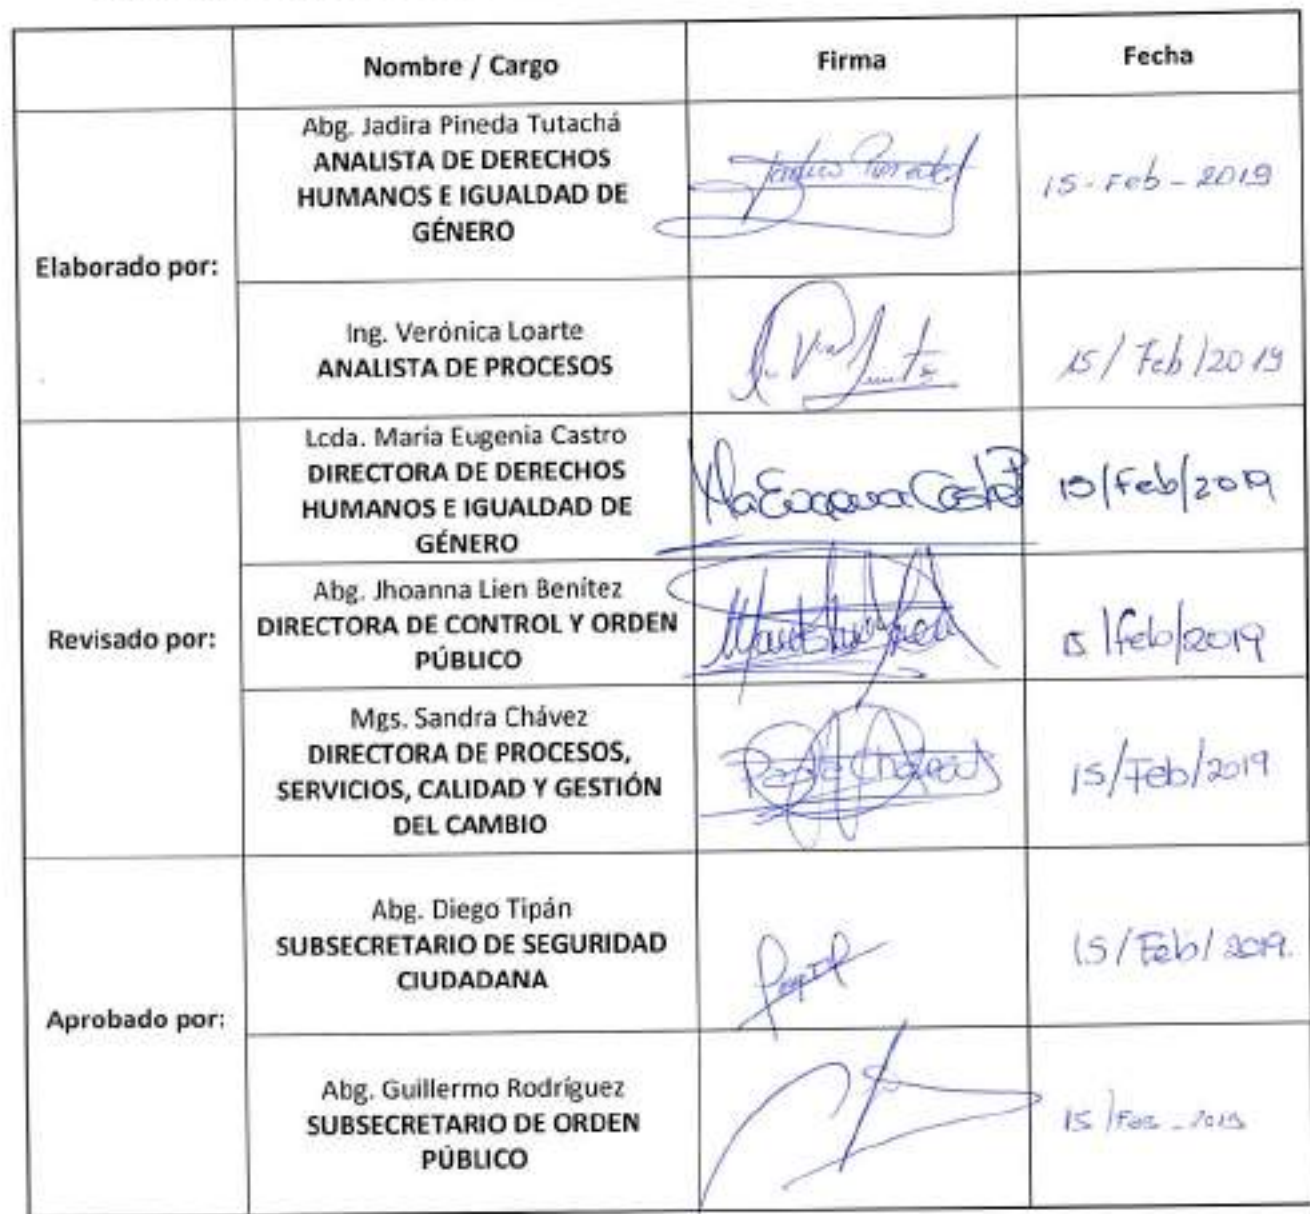 Nombre / Cargo
Firma
Fecha
Elaborado por:
Abg. Jadira Pineda Tutachá
ANALISTA DE DERECHOS
HUMANOS E IGUALDAD DE
GÉNERO
15-Feb-2019
Ing. Verónica Loarte
ANALISTA DE PROCESOS
15/Feb/2019
Revisado por:
Lcda. María Eugenia Castro
DIRECTORA DE DERECHOS
HUMANOS E IGUALDAD DE
GÉNERO
Ma Eugenia Castro
15/Feb/2019
Abg. Jhoanna Lien Benítez
DIRECTORA DE CONTROL Y ORDEN
PÚBLICO
15/feb/2019
Mgs. Sandra Chávez
DIRECTORA DE PROCESOS,
SERVICIOS, CALIDAD Y GESTIÓN
DEL CAMBIO
15/Feb/2019
Aprobado por:
Abg. Diego Tipán
SUBSECRETARIO DE SEGURIDAD
CIUDADANA
15/Feb/2019.
Abg. Guillermo Rodríguez
SUBSECRETARIO DE ORDEN
PÚBLICO